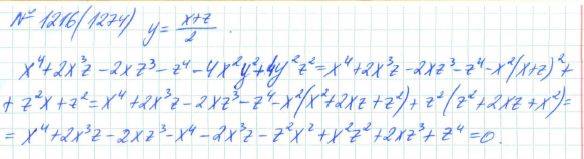 № 1216(1274) y = (x+z)/2.
x⁴+2x³z-2xz³-z⁴-4x²y²+4y²z²=x⁴+2x³z-2xz³-z⁴-x²(x+z)²+
+z²x+z²=x⁴+2x³z-2xz³-z⁴-x²(x²+2xz+z²)+z²(z²+2xz+x²)=
=x⁴+2x³z-2xz³-x⁴-2x³z-z²x²+x²z²+2xz³+z⁴=0.